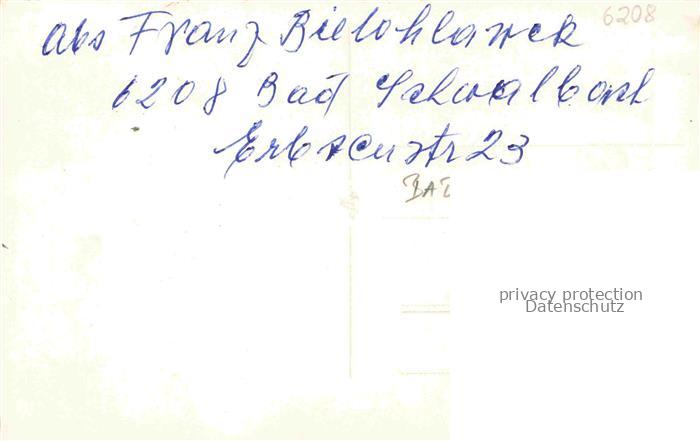 Abs Franz Bielohlawek 6208
6208 Bad Schwalbach
Erbsenstr 23
BAD
privacy protection
Datenschutz